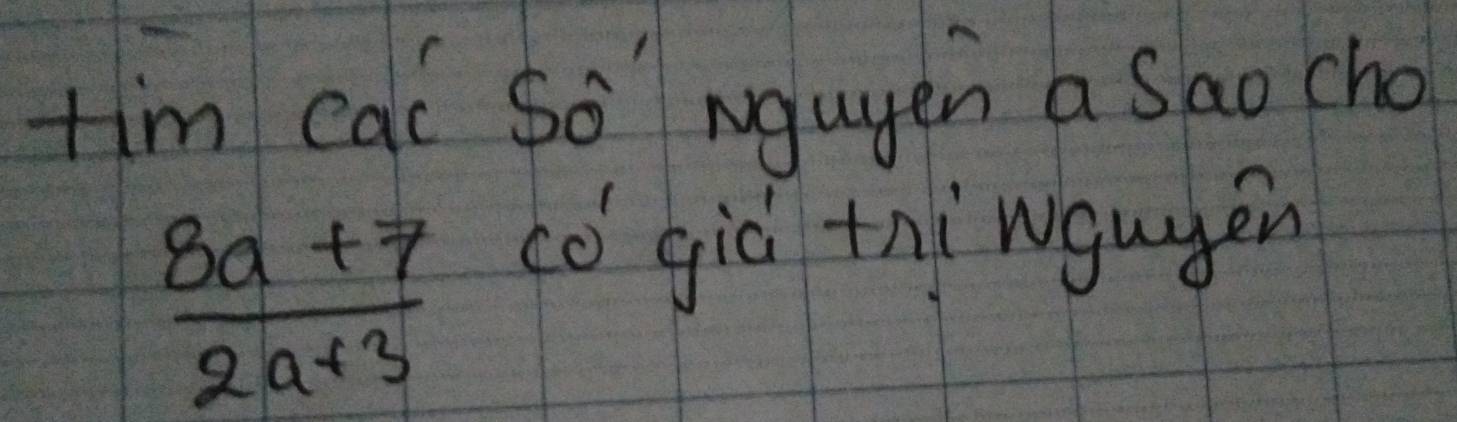 tìm các số nguyên a sao cho
8a + 7 có giá trị nguyên
2a+3